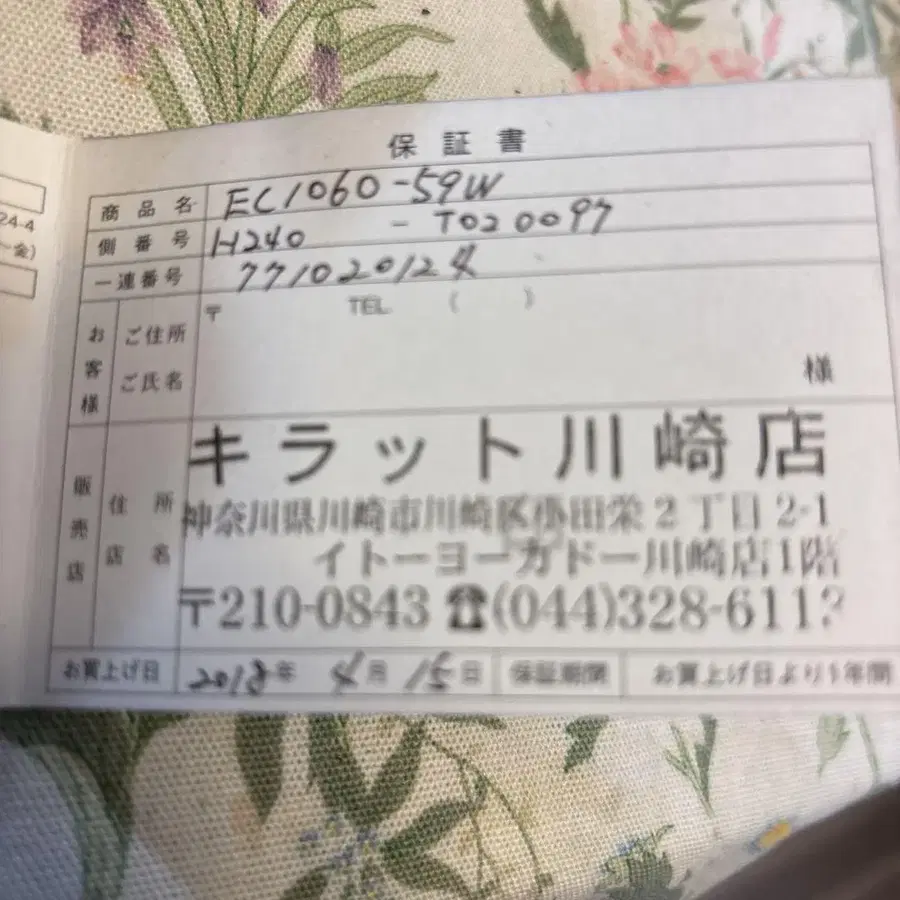 24-4
金)
保証書
商品名 EC1060-59W
側番号 H240 - T020097
一連番号 771020124
お客様 ご住所 〒 TEL ( )
ご氏名 様
販売店 住所 店名
キラット川崎店
神奈川県川崎市川崎区小田栄2丁目2-1
イトーヨーカドー川崎店1階
〒210-0843 ☎(044)328-611
お買上げ日 2018年 4月 15日 保証期間 お買上げ日より1年間